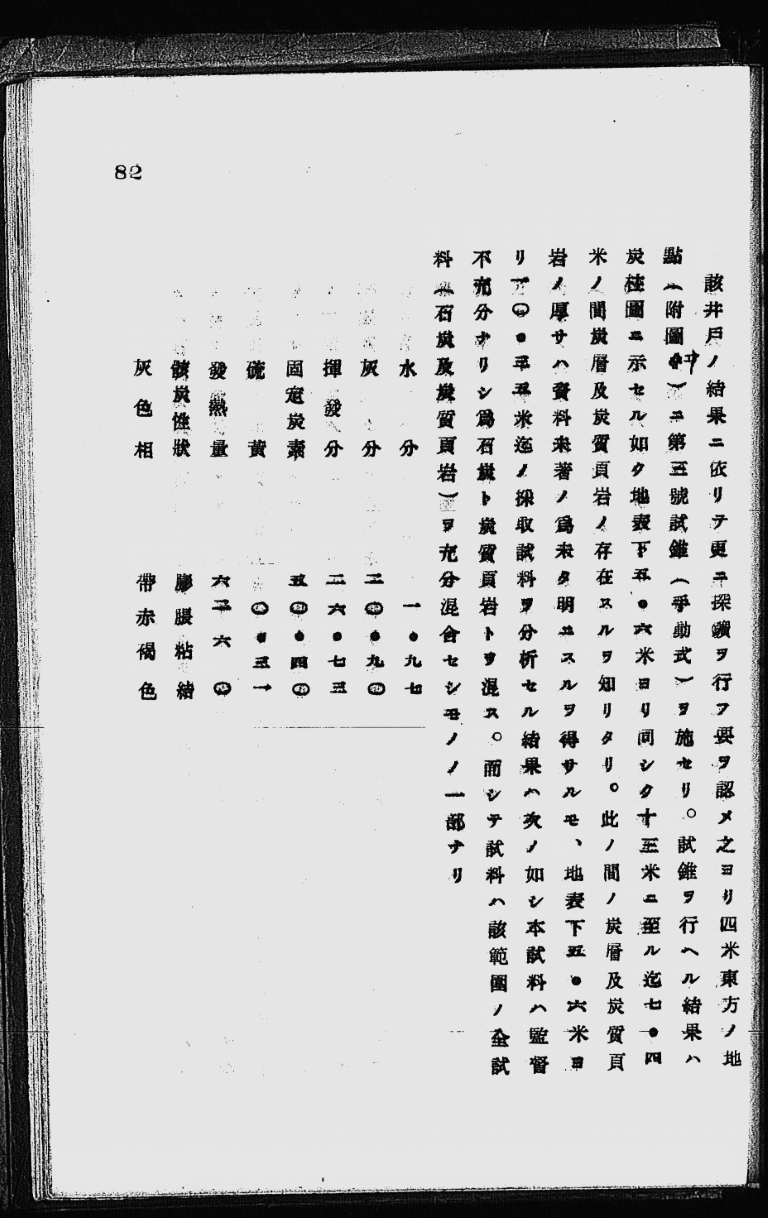 該井戸ノ結果ニ依リテ更ニ探鑛ヲ行フ要ヲ認メ之ヨリ四米東方ノ地
點(附圖中)ニ第三號試錐(手動式)ヲ施セリ。試錐ヲ行ヘル結果ハ
炭柱圖ニ示セル如ク地表下五•六米ヨリ同シク十三米ニ至ル迄七•四
米ノ間炭層及炭質頁岩ノ存在スルヲ知リタリ。此ノ間ノ炭層及炭質頁
岩ノ厚サハ資料未著ノ爲未タ明ニスルヲ得サルモ、地表下五•六米ヨ
リ一〇•三五米迄ノ採取試料ヲ分析セル結果ハ次ノ如シ本試料ハ監督
不充分ナリシ爲石炭ト炭質頁岩トヲ混ス。而シテ試料ハ該範圍ノ全試
料(石炭及炭質頁岩)ヲ充分混合セシモノノ一部ナリ
水分 一•九七
灰分 二〇•九〇
揮發分 二六•七三
固定炭素 五〇•四〇
硫黃 〇•三一
發熱量 六二六〇
骸炭性狀 膨脹粘結
灰色相 帶赤褐色
82